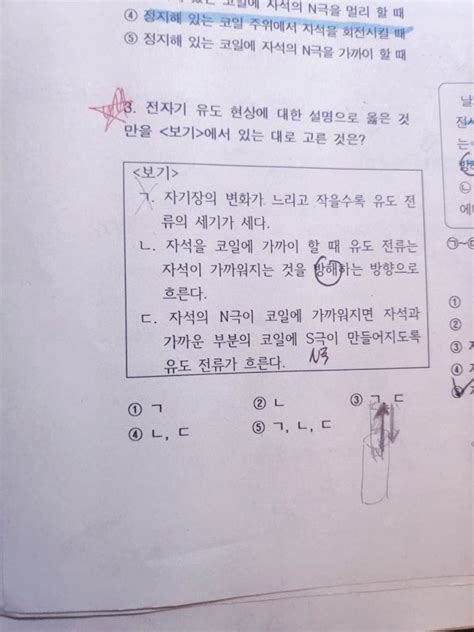 코일에 자석의 N극을 멀리 할 때
④ 정지해 있는 코일 주위에서 자석을 회전시킬 때
⑤ 정지해 있는 코일에 자석의 N극을 가까이 할 때
3. 전자기 유도 현상에 대한 설명으로 옳은 것
만을 <보기>에서 있는 대로 고른 것은?
<보기>
ㄱ. 자기장의 변화가 느리고 작을수록 유도 전
류의 세기가 세다.
ㄴ. 자석을 코일에 가까이 할 때 유도 전류는
자석이 가까워지는 것을 방해하는 방향으로
흐른다.
ㄷ. 자석의 N극이 코일에 가까워지면 자석과
가까운 부분의 코일에 S극이 만들어지도록
유도 전류가 흐른다.
N극
① ㄱ ② ㄴ ③ ㄱ, ㄷ
④ ㄴ, ㄷ ⑤ ㄱ, ㄴ, ㄷ
㉡
㉠~㉢
①
②
③
④